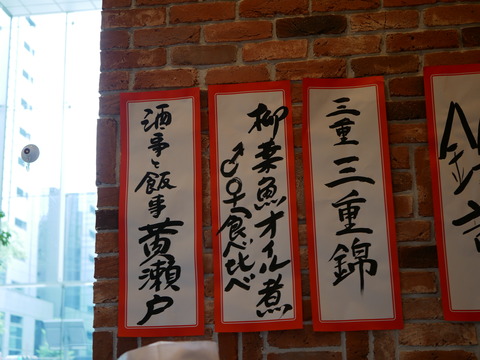 三重 三重錦
柳葉魚オイル煮
♂♀食べ比べ
酒事と飯事 黄瀬戸